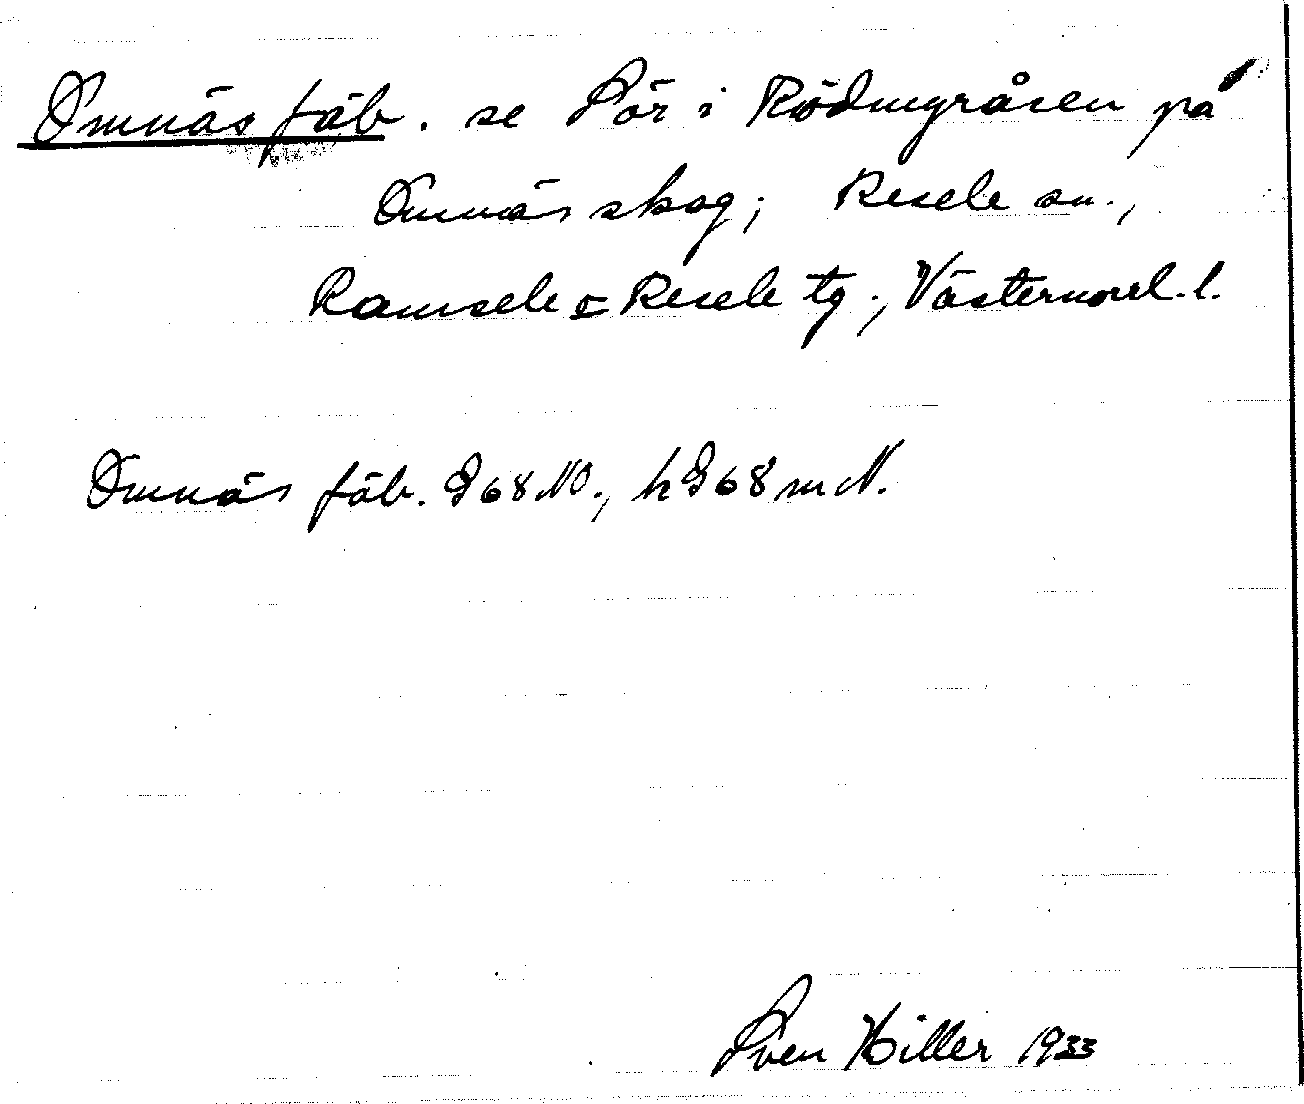 Omnäs fäb. se Sör i Rödmyråsen på
Omnäs skog; Resele sn.,
Ramsele o Resele tg., Västernorrl. l.
Omnäs fäb. G 68 NO., h G 68 m N.
Sven Hiller 1933